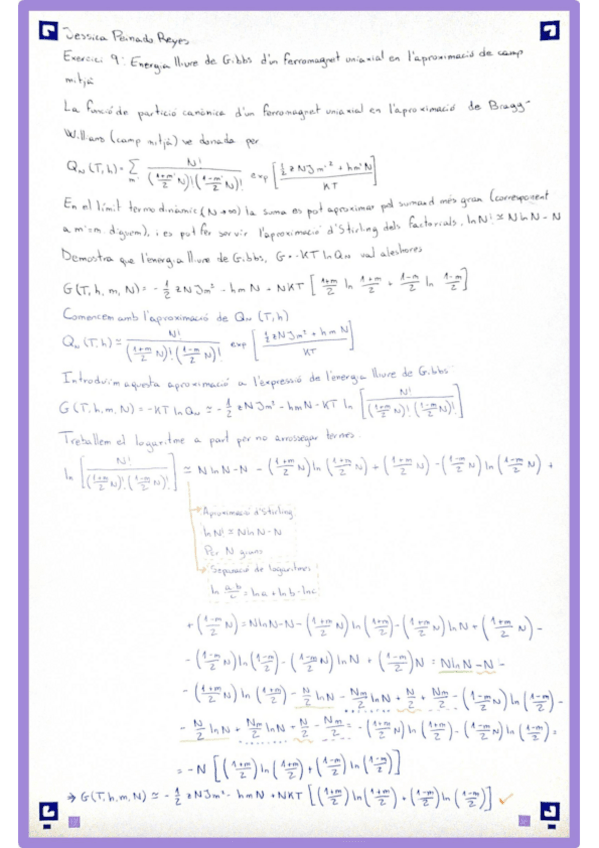 Jessica Peinado Reyes
Exercici 9: Energia lliure de Gibbs d'un ferromagnet uniaxial en l'aproximació de camp
mitjà
La funció de partició canònica d'un ferromagnet uniaxial en l'aproximació de Bragg-
Willians (camp mitjà) ve donada per
Q_N (T,h) = Σ_m' N! / ((1+m'/2 N)! (1-m'/2 N)!) exp [(1/2 zNJm'² + hm'N) / KT]
En el límit termodinàmic (N→∞) la suma es pot aproximar pel sumand més gran (corresponent
a m'=m diguem), i es pot fer servir l'aproximació d'Stirling dels factorials, lnN! ≈ NlnN-N
Demostra que l'energia lliure de Gibbs, G=-KT lnQ_N val aleshores
G(T,h,m,N) = -1/2 zNJm² - hmN + NKT [1+m/2 ln 1+m/2 + 1-m/2 ln 1-m/2]
Comencem amb l'aproximació de Q_N (T,h)
Q_N (T,h) ≈ N! / ((1+m/2 N)! (1-m/2 N)!) exp [(1/2 zNJm² + hmN) / KT]
Introduïm aquesta aproximació a l'expressió de l'energia lliure de Gibbs:
G(T,h,m,N) = -KT lnQ_N ≈ -1/2 zNJm² - hmN - KT ln [N! / ((1+m/2 N)! (1-m/2 N)!)]
Treballem el logaritme a part per no arrossegar termes:
ln [N! / ((1+m/2 N)! (1-m/2 N)!)] ≈ NlnN-N - (1+m/2 N) ln (1+m/2 N) + (1+m/2 N) - (1-m/2 N) ln (1-m/2 N) +
Aproximació d'Stirling
lnN! ≈ NlnN-N
Per N grans
Separació de logaritmes
ln a·b/c = lna + lnb - lnc
+ (1-m/2 N) = NlnN-N - (1+m/2 N) ln (1+m/2) - (1+m/2 N) lnN + (1+m/2 N) -
- (1-m/2 N) ln (1-m/2) - (1-m/2 N) lnN + (1-m/2) N = NlnN - N -
- (1+m/2 N) ln (1+m/2) - N/2 lnN - Nm/2 lnN + N/2 + Nm/2 - (1-m/2 N) ln (1-m/2) -
- N/2 lnN + Nm/2 lnN + N/2 - Nm/2 = - (1+m/2 N) ln (1+m/2) - (1-m/2 N) ln (1-m/2) =
= -N [(1+m/2) ln (1+m/2) + (1-m/2) ln (1-m/2)]
→ G(T,h,m,N) ≈ -1/2 zNJm² - hmN + NKT [(1+m/2) ln (1+m/2) + (1-m/2) ln (1-m/2)] ✓